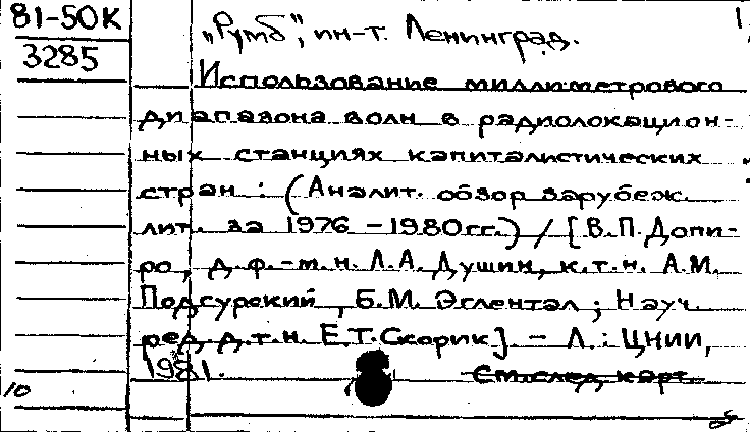 81-50К
3285
1
„Румб", ин-т. Ленинград.
Использование миллиметрового
диапазона волн в радиолокацион-
ных станциях капиталистических
стран : (Аналит. обзор зарубеж.
лит. за 1976 - 1980гг.) / [В.П. Допи-
ро, д.ф.-м.н. Л.А. Душин, к.т.н. А.М.
Подсурский, Б.М. Эглентал ; Науч.
ред. д.т.н. Е.Т. Скорик]. - Л. : ЦНИИ,
1981.
См. след. карт.
10